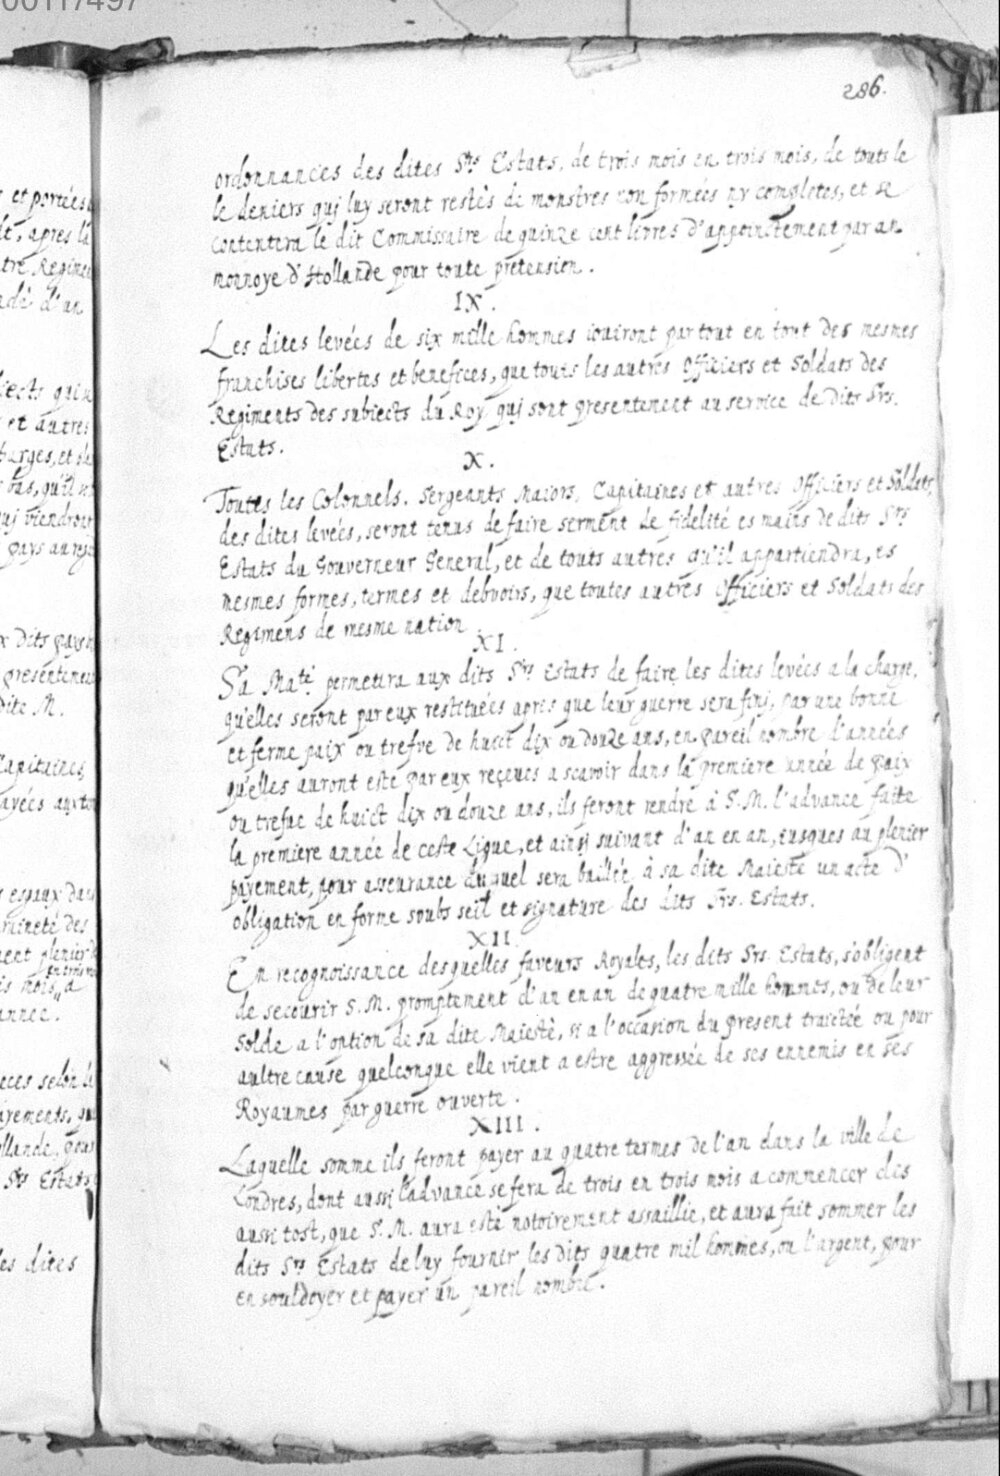 286.
ordonnances des dites Srs Estats, de trois mois en trois mois, de touts le
le deniers qui luy seront restès de monstres non formées ny completes, et se
contentera le dit Commissaire de quinze cent livres d'appoinctement par an
monnoye d'Hollande pour toute pretension.
IX.
Les dites levées de six mille hommes iouiront par tout en tout des mesmes
franchises libertes et benefices, que touts les autres Officiers et Soldats des
Regiments des subiects du Roy qui sont presentement au service de dits Srs.
Estats.
X.
Toutes les Colonnels. Sergeants Maiors, Capitaines et autres Officiers et Soldats,
des dites levées, seront tenus de faire serment de fidelité es mains de dits Srs
Estats du Gouverneur General, et de touts autres qu'il appartiendra, es
mesmes formes, termes et debvoirs, que toutes autres Officiers et Soldats des
Regimens de mesme nation
XI.
Sa Maté permetira aux dits Srs Estats de faire les dites levées a la charge,
qu'elles seront par eux restituées apres que leur guerre sera fini, par une bonne
et ferme paix ou trefve de huict dix ou douze ans, en pareil nombre d'années
qu'elles auront esté par eux reçeues a scavoir dans la premiere année de paix
ou trefue de huict dix ou douze ans, ils feront rendre à S. M. l'advance faite
la premiere année de ceste Ligue, et ainsi suivant d'an en an, iusques au plenier
payement, pour asseurance duquel sera baillée à sa dite Maieste un acte d'
obligation en forme soubs seil et signature des dits Srs. Estats.
XII
En recognoissance desquelles faveurs Royales, les dits Srs. Estats, s'obligent
de secourir S. M. promptement d'an en an de quatre mille hommes, ou de leur
Solde a l'option de sa dite Maiestè, si a l'occasion du present traictée ou pour
aultre cause quelconque elle vient a estre aggressée de ses ennemis en ses
Royaumes par guerre ouverte.
XIII.
Laquelle somme ils feront payer au quatre termes de l'an dans la ville de
Londres, dont aussi l'advance se fera de trois en trois mois a commencer dés
aussi tost, que S. M. aura estè notoirement assaillie, et aura fait sommer les
dits Srs Estats de luy fournir les dits quatre mil hommes, ou l'argent, pour
en souldoyer et payer un pareil nombre.